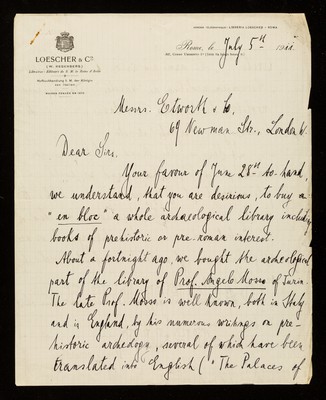 LOESCHER & Cº
(W. REGENBERG)
Rome, le July 5th 1911.
Messrs. Edworth & Co,
69 Newman Str., London W.
Dear Sirs,
Your favour of June 28th to hand,
we understand, that you are desirious, to buy a
"en bloc" a whole archaeological library including
books of prehistoric or pre-roman interest.
About a fortnight ago, we bought the archeological
part of the library of Prof. Angelo Mosso of Turin.
The late Prof. Mosso is well known, both in Italy
and in England, by his numerous writings on pre-
historic archeology, several of which have been
translated into English ("The Palaces of